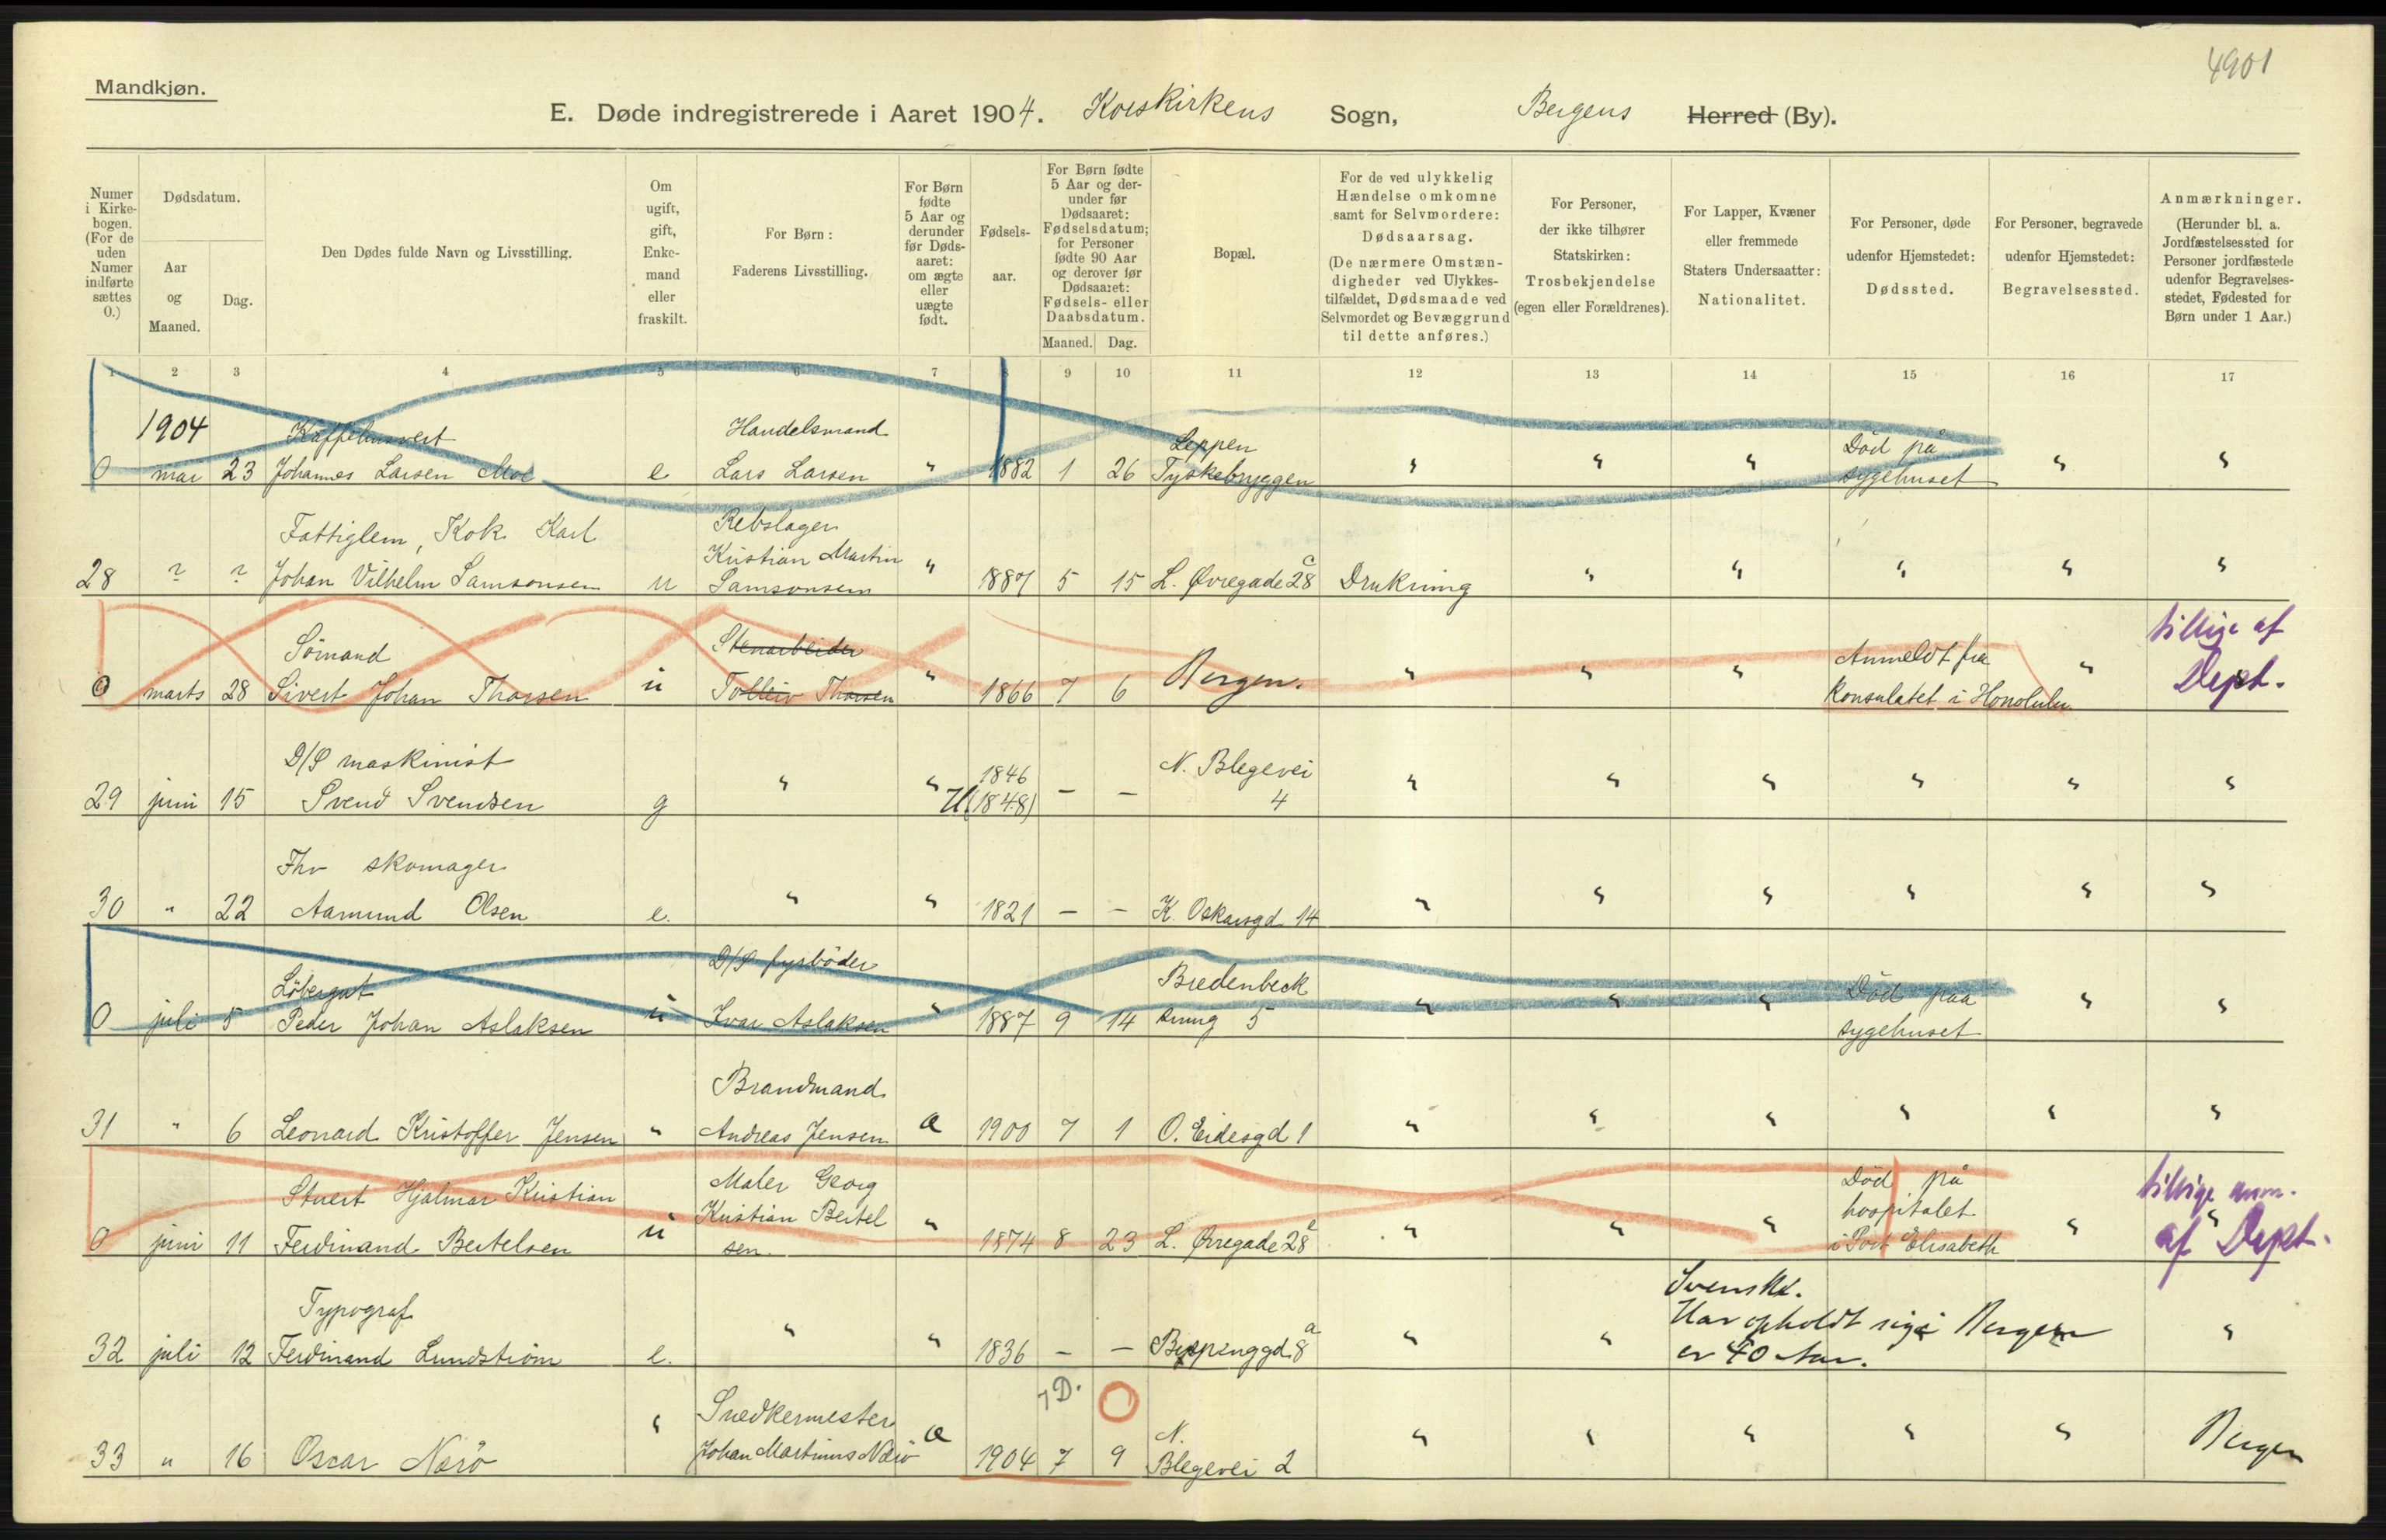 4901
Mandkjøn.
E. Døde indregistrerede i Aaret 1904. Korskirkens Sogn, Bergens Herred (By).
Numer i Kirkebogen. (For de uden Numer indførte sættes 0.)
Dødsdatum.
Aar og Maaned.
Dag.
Den Dødes fulde Navn og Livsstilling.
Om ugift, gift, Enkemand eller fraskilt.
For Børn: Faderens Livsstilling.
For Børn fødte 5 Aar og derunder før Dødsaaret: om ægte eller uægte født.
Fødselsaar.
For Børn fødte 5 Aar og derunder før Dødsaaret: Fødselsdatum; for Personer fødte 90 Aar og derover før Dødsaaret: Fødsels- eller Daabsdatum.
Maaned. Dag.
Bopæl.
For de ved ulykkelig Hændelse omkomne samt for Selvmordere: Dødsaarsag. (De nærmere Omstændigheder ved Ulykkestilfældet, Dødsmaade ved Selvmordet og Bevæggrund til dette anføres.)
For Personer, der ikke tilhører Statskirken: Trosbekjendelse (egen eller Forældrenes).
For Lapper, Kvæner eller fremmede Staters Undersaatter: Nationalitet.
For Personer, døde udenfor Hjemstedet: Dødssted.
For Personer, begravede udenfor Hjemstedet: Begravelsessted.
Anmærkninger. (Herunder bl. a. Jordfæstelsessted for Personer jordfæstede udenfor Begravelsesstedet, Fødested for Børn under 1 Aar.)
1 2 3 4 5 6 7 8 9 10 11 12 13 14 15 16 17
1904 Kaffehusvert Handelsmand Leppen Død på
0 mar 23 Johannes Larsen Moe e Lars Larsen " 1882 1 26 Tyskebryggen " " " sygehuset " "
Fattiglem, Kok Karl Rebslager
Kristian Martin
28 ? ? Johan Vilhelm Samsonsen u Samsonsen " 1887 5 15 L. Øvregade 28 c Drukning " " " " "
Sømand Stenarbeider Anmeldt fra tillige af
0 marts 28 Sivert Johan Thorsen ü Tolleiv Thorsen " 1866 7 6 Bergen. " " " konsulatet i Honolulu " Dept.
D/S maskinist 1846 N. Blegevei
29 juni 15 Svend Svendsen g " " U (1848) – – 4 " " " " " "
Fhv skomager
30 " 22 Aamund Olsen e. " " 1821 – – K. Oskarsgd 14 " " " " " "
Löbergut D/S fyrbøder Bredenbeck Død paa
0 juli 5 Peder Johan Aslaksen ü Ivar Aslaksen " 1887 9 14 smug 5 " " " sygehuset " "
Brandmand
31 " 6 Leonard Kristoffer Jensen " Andreas Jensen Æ 1900 7 1 O. Eidesgd 1 " " " " " "
Stuert Hjalmar Kristian Maler Georg Død på tillige anm.
Kristian Bertel hospitalet
0 juni 11 Ferdinand Bertelsen ü sen. " 1874 8 23 L. Øvregade 28 c " " " i Port Elisabeth " af Dept.
Typograf Svensk.
Har opholdt sig i Bergen
32 juli 12 Ferdinand Lundström e. " " 1836 – – Bispenggd 8 a " " er 40 Aar. "
7 D.
Snedkermester N.
33 " 16 Oscar Nærö " Johan Martinius Nærö Æ 1904 7 9 Blegevei 2 " " " " " Bergen